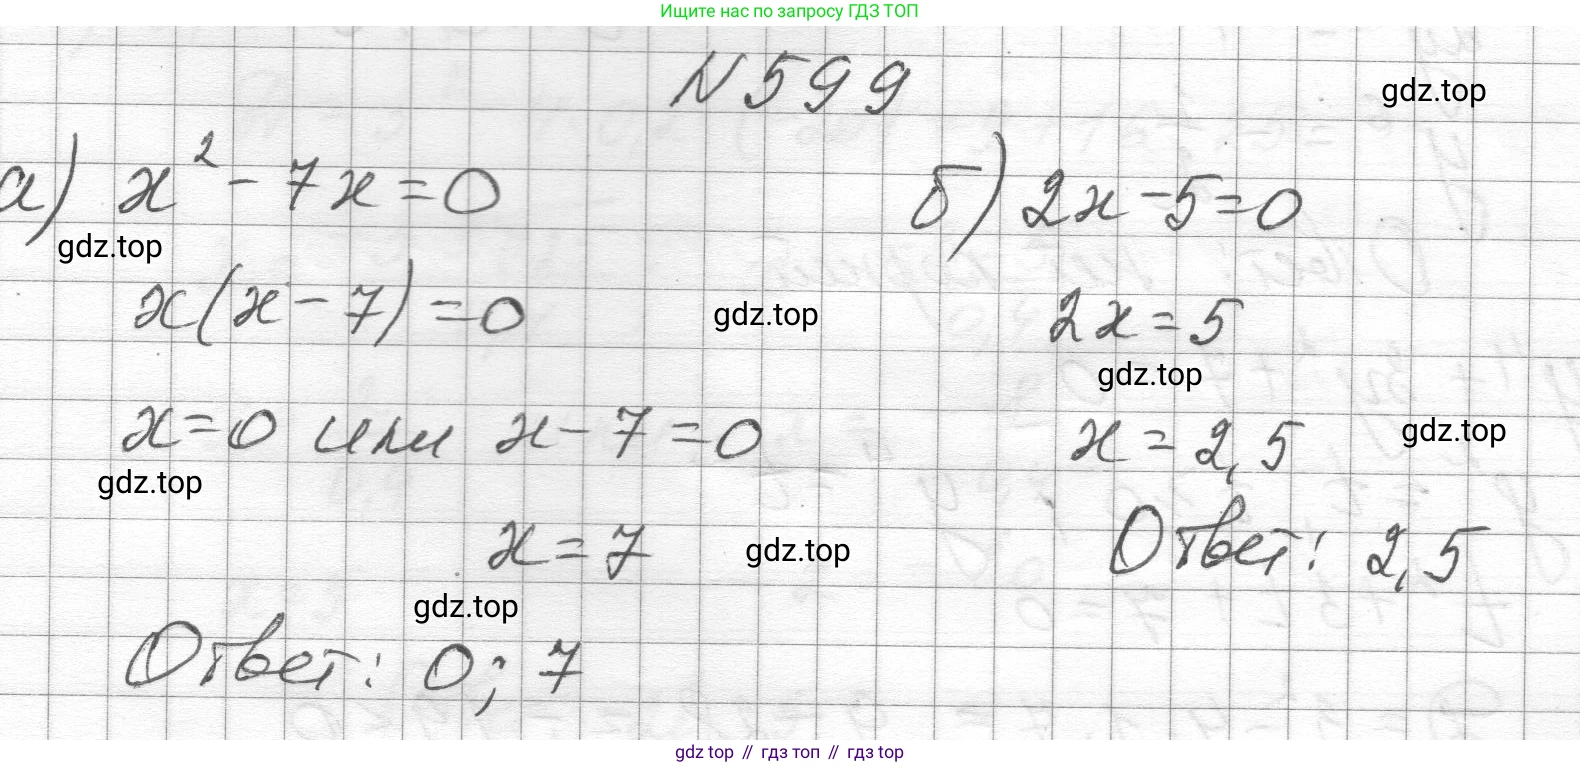 Ищите нас по запросу ГДЗ ТОП
N 599
gdz.top
а) x² - 7x = 0
б) 2x - 5 = 0
gdz.top
x(x - 7) = 0
gdz.top
2x = 5
gdz.top
x = 0 или x - 7 = 0
x = 2,5
gdz.top
gdz.top
x = 7
gdz.top
Ответ: 2,5
gdz.top
Ответ: 0; 7
gdz top // гдз топ // гдз top